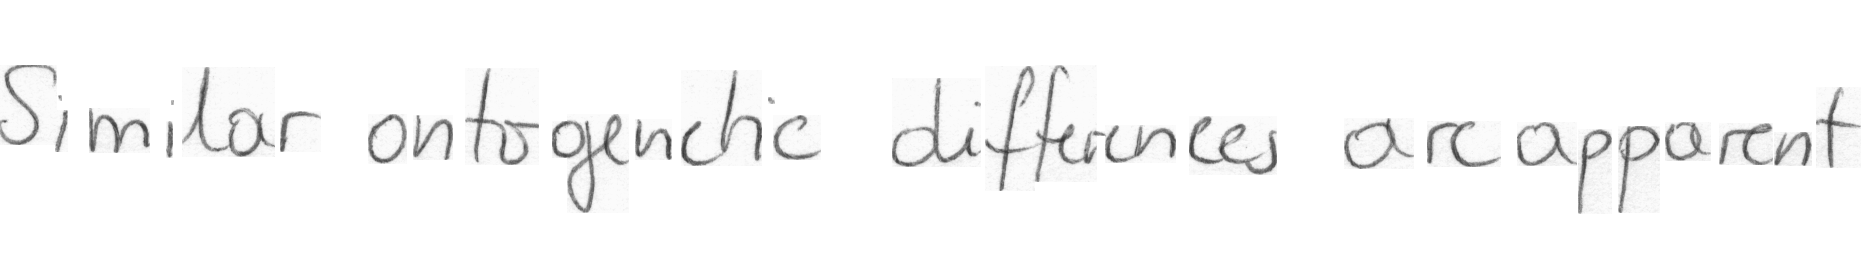 Similar ontogenetic differences are apparent